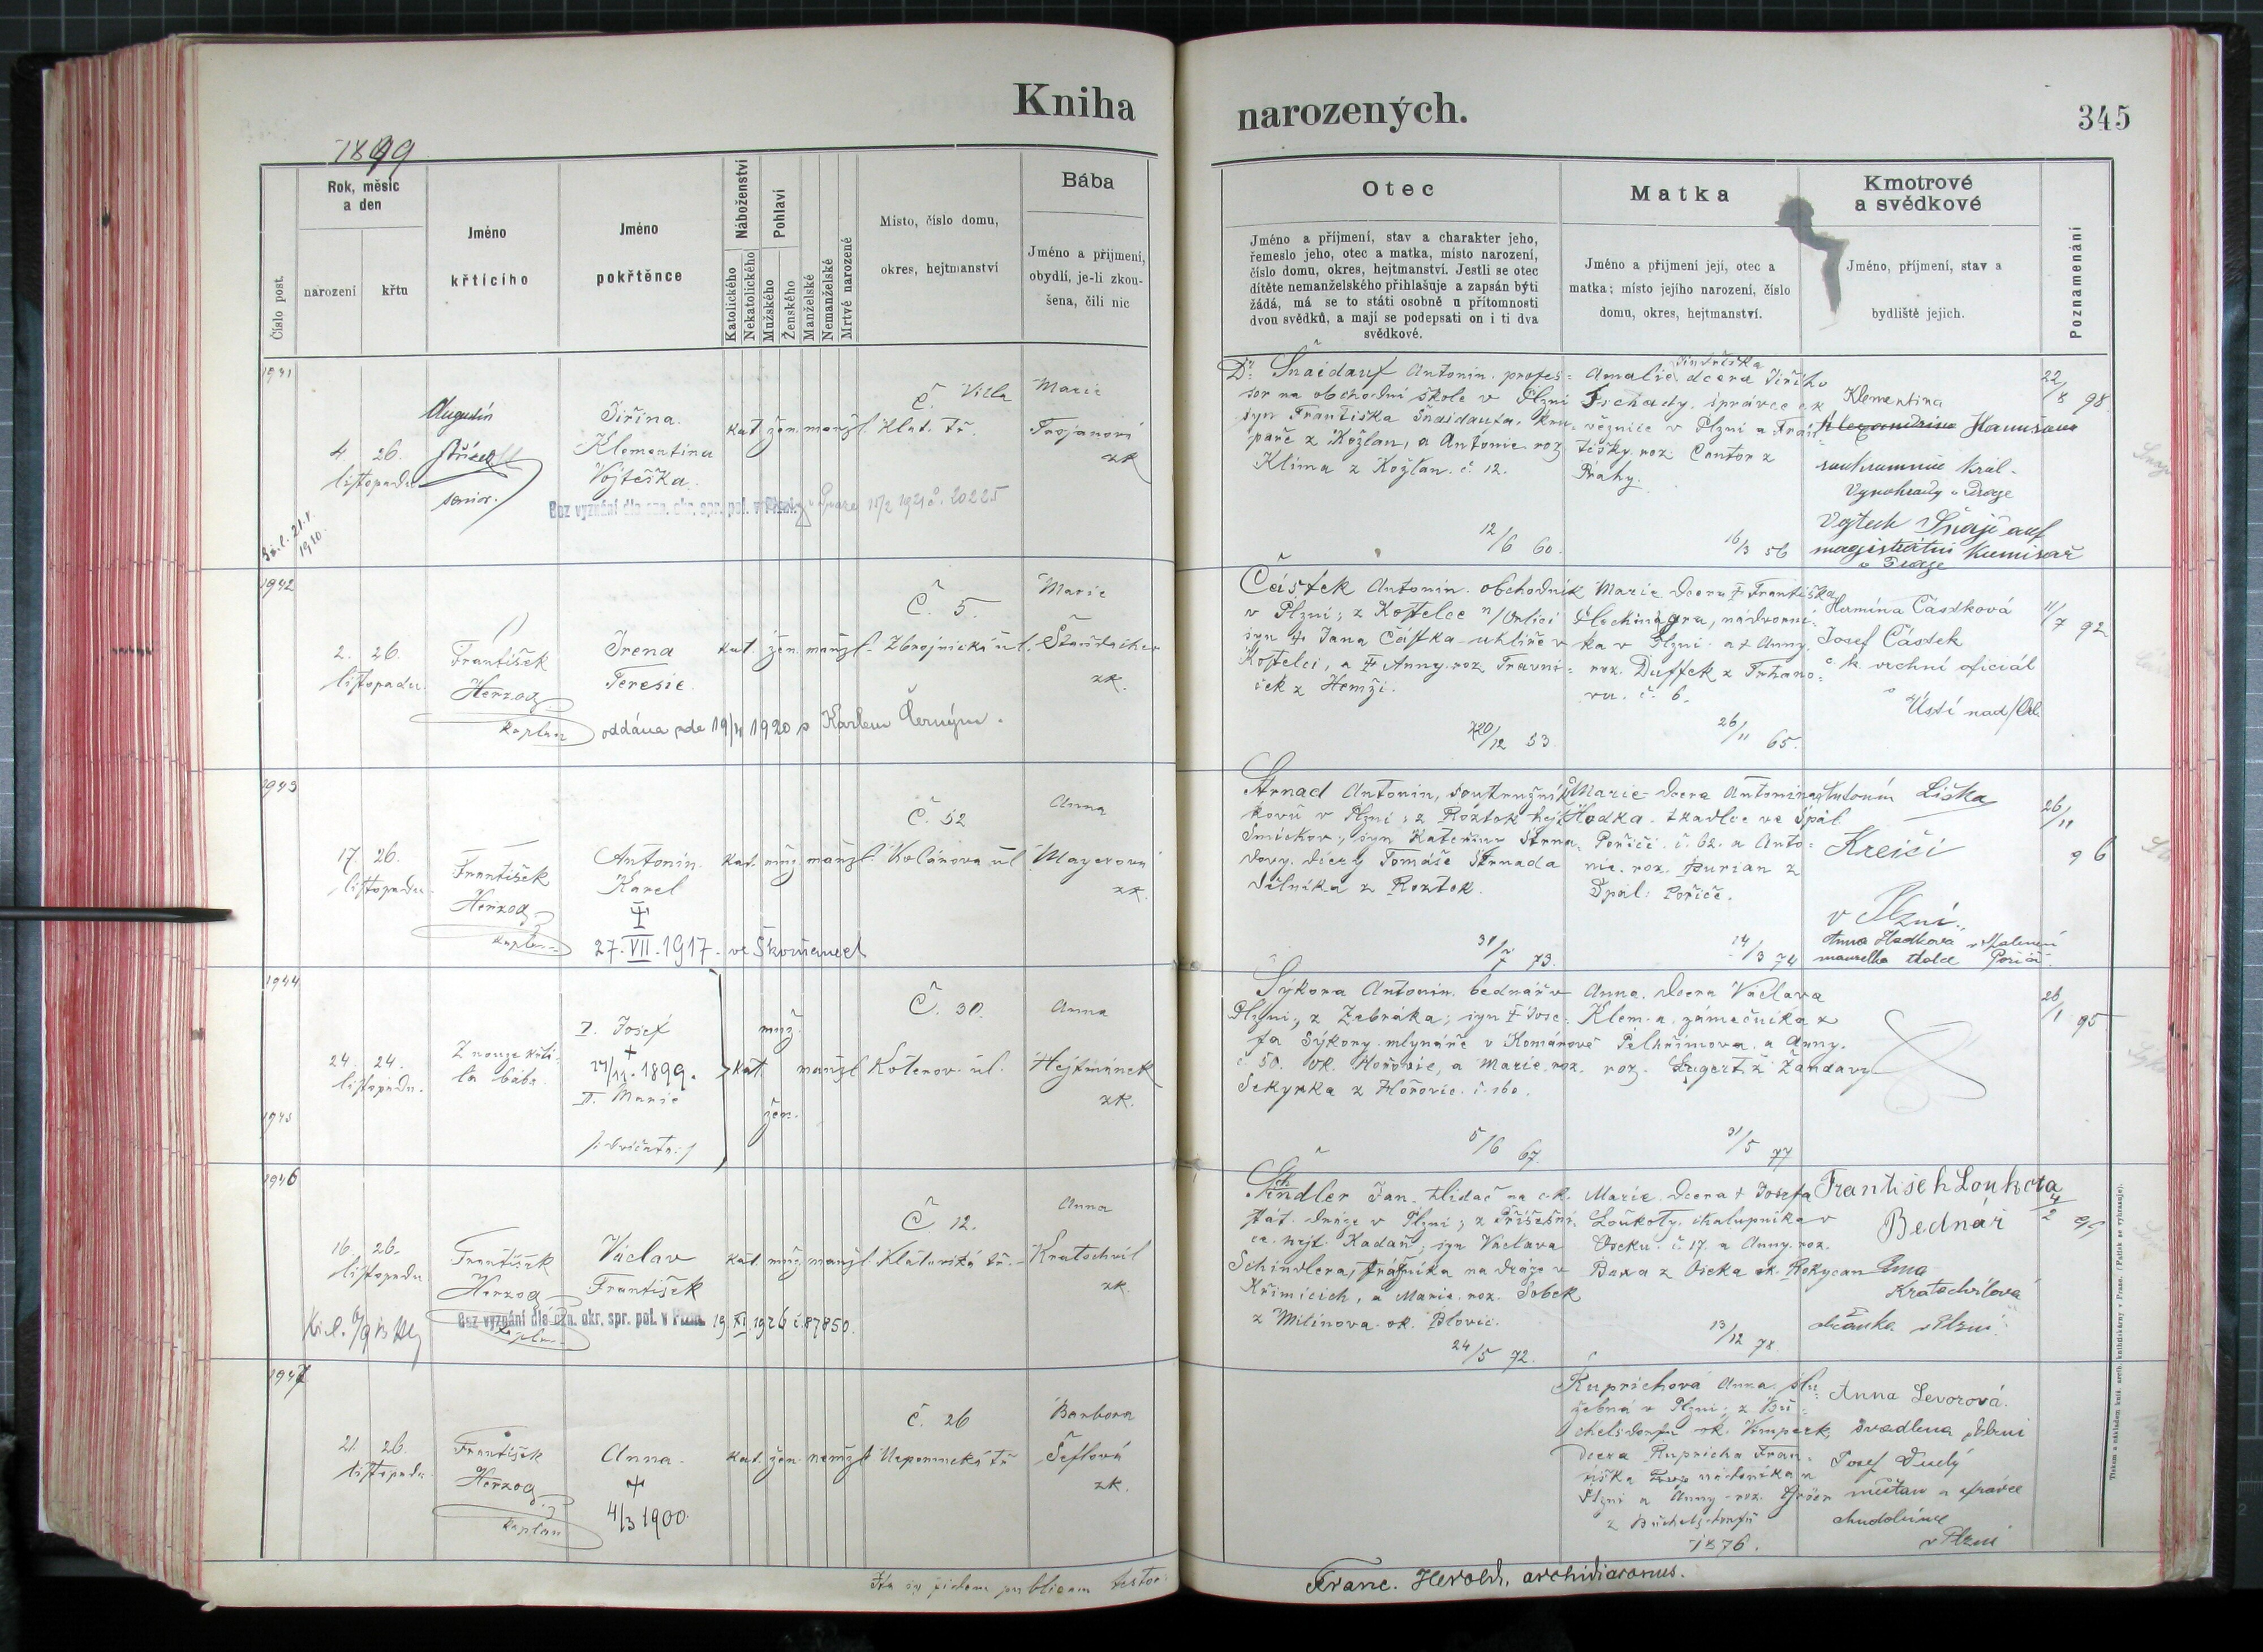 Kniha
narozených.
345
1899
Číslo post.
Rok, měsíc
a den
narození
křtu
Jméno
křtícího
Jméno
pokřtěnce
Náboženství
Katolického
Nekatolického
Pohlaví
Mužského
Ženského
Manželské
Nemanželské
Mrtvé narozené
Místo, číslo domu,
okres, hejtmanství
Bába
Jméno a příjmení,
obydlí, je-li zkou-
šena, čili nic
Otec
Jméno a příjmení, stav a charakter jeho,
řemeslo jeho, otec a matka, místo narození,
číslo domu, okres, hejtmanství. Jestli se otec
dítěte nemanželského přihlašuje a zapsán býti
žádá, má se to státi osobně u přítomnosti
dvou svědků, a mají se podepsati on i ti dva
svědkové.
Matka
Jméno a příjmení její, otec a
matka; místo jejího narození, číslo
domu, okres, hejtmanství.
Kmotrové
a svědkové
Jméno, příjmení, stav a
bydliště jejich.
Poznamenání
1941
4. 26.
listopadu
21.1.
1910.
Augustin
senior.
Jiřina
Klementina
Vojteška
Bez vyznání dle ozn. okr. spr. pol. v Praze 15/2 1921 č. 20225
kat. žen. manžl. Klat. tř.
č. Villa
Marie
Trojanová
zk
Dr. Šnaidauf Antonín. profes=
sor na obchodní škole v Plzni
syn Františka Šnaidaufa, kru=
paře z Kožlan, a Antonie roz
Klíma z Kožlan. č. 12.
12/6 60.
Amalie Jindřiška dcera Jiřího
správce ck
věznice v Plzni a Fran=
tišky. roz. Cantor z
Prahy.
16/3 56
Klementina
soukromnice Král-
Vynohrady u Prage
Vojtech Šnajdauf
magistrátní komisař
v Praze
22/8 98
1942
2. 26.
listopadu.
František
Herzog
kaplan
Irena
Teresie.
oddána zde 19/4 1920 s Karlem Černým.
kat. žen. manžl. Zbrojnická ul.
Č. 5.
Marie
zk.
Částek Antonín. obchodník
v Plzni; z Kostelce n/Orlicí
syn † Jana Částka uhlíře v
Kostelci, a † Anny. roz. Travní=
ček z Hemži.
20/12 53.
Marie dcera † Františka
nádvorní=
ka v Plzni a † Anny.
roz. Duffek z Trhano=
va. č. 6.
26/11 65.
Hermína Částková
Josef Částek
c. k. vrchní oficiál
v Ústí nad/Orl.
11/7 92
1943
17. 26.
listopadu.
František
Herzog
kaplan
Antonín.
Karel
†
27. VII. 1917.
kat. muž. manžl. Kolárova ul.
Č. 52
Anna
Mayerova
zk.
Strnad Antonín, soustružník
kovů v Plzni; z Roztok hejt
Smíchov; syn Kateřiny Strna=
dovy. dcery Tomáše Strnada
dělníka z Roztok.
73.
Marie dcera Antonína
Hodka. tkadlce ve Spál.
Poříčí. č. 62. a Anto=
nie. roz. Burian z
Spál. Poříče.
14/3 74
Antonín Liška
Krejčí
v Plzni.
Anna Hodková v Spáleném
manželka tkalce Poříčí.
26/11 96
1944
24. 24.
listopadu.
1945
Z nouze křti=
la bába.
I. Josef
†
24/11. 1899.
II. Marie
/: dvojčata :/
kat. muž. žen. manžl. Koterov. ul.
Č. 30.
Anna
Hejtmánek
zk.
Sýkora Antonín. bednář v
Plzni, z Žebráka; syn † Jose=
fa Sýkory. mlynáře v Komárově
č. 50. ok. Hořovic, a Marie. roz.
Sekyrka z Hořovic. č. 160.
5/6 67.
Anna. dcera Václava
Klem a. zámečníka z
Pelhřimova. a Anny.
31/5 77
28/1 95
1946
16. 26.
listopadu
František
Herzog
kaplan
Václav
František
Bez vyznání dle ozn. okr. spr. pol. v Plzni. 19 XI 1926 č. 87850.
kat. muž. manžl. Klatovská tř.
Č. 12.
Anna
Kratochvíl
zk.
Šindler Jan. hlídač na c.k.
stát. dráze v Plzni; z
hejt. Kadaň; syn Václava
Schindlera, strážníka na dráze v
Křimicích, a Marie. roz. Sobek
z Milinova. ok. Blovic.
24/5 72.
Marie. dcera † Josefa
Loukoty. chalupníka v
Oseku. č. 17. a Anny. roz.
Baxa z Oseka ok. Rokycan
13/12 78.
František Loukota
Bednář
Anna
Kratochvílova
občanka v Plzni.
4/2 99
1947
21. 26.
listopadu.
František
Herzog
kaplan
Anna.
†
4/3 1900.
kat. žen. nemžl. Nepomucká tř
č. 26
Barbora
Šeflová
zk.
Ruprichová Anna. slu=
žebná v Plzni; z Bu=
chelsdorfu ok.
dcera Rupricha Fran=
tiška nádeníka v
Plzni a Anny. roz.
z Buchelsdorfu
1876.
Anna Levorová.
švadlena Plzni
Josef Dudý
měšťan a správce
chudobince
v Plzni
Ita in fidem publicam testor:
Franc. Herold, archidiaconus.